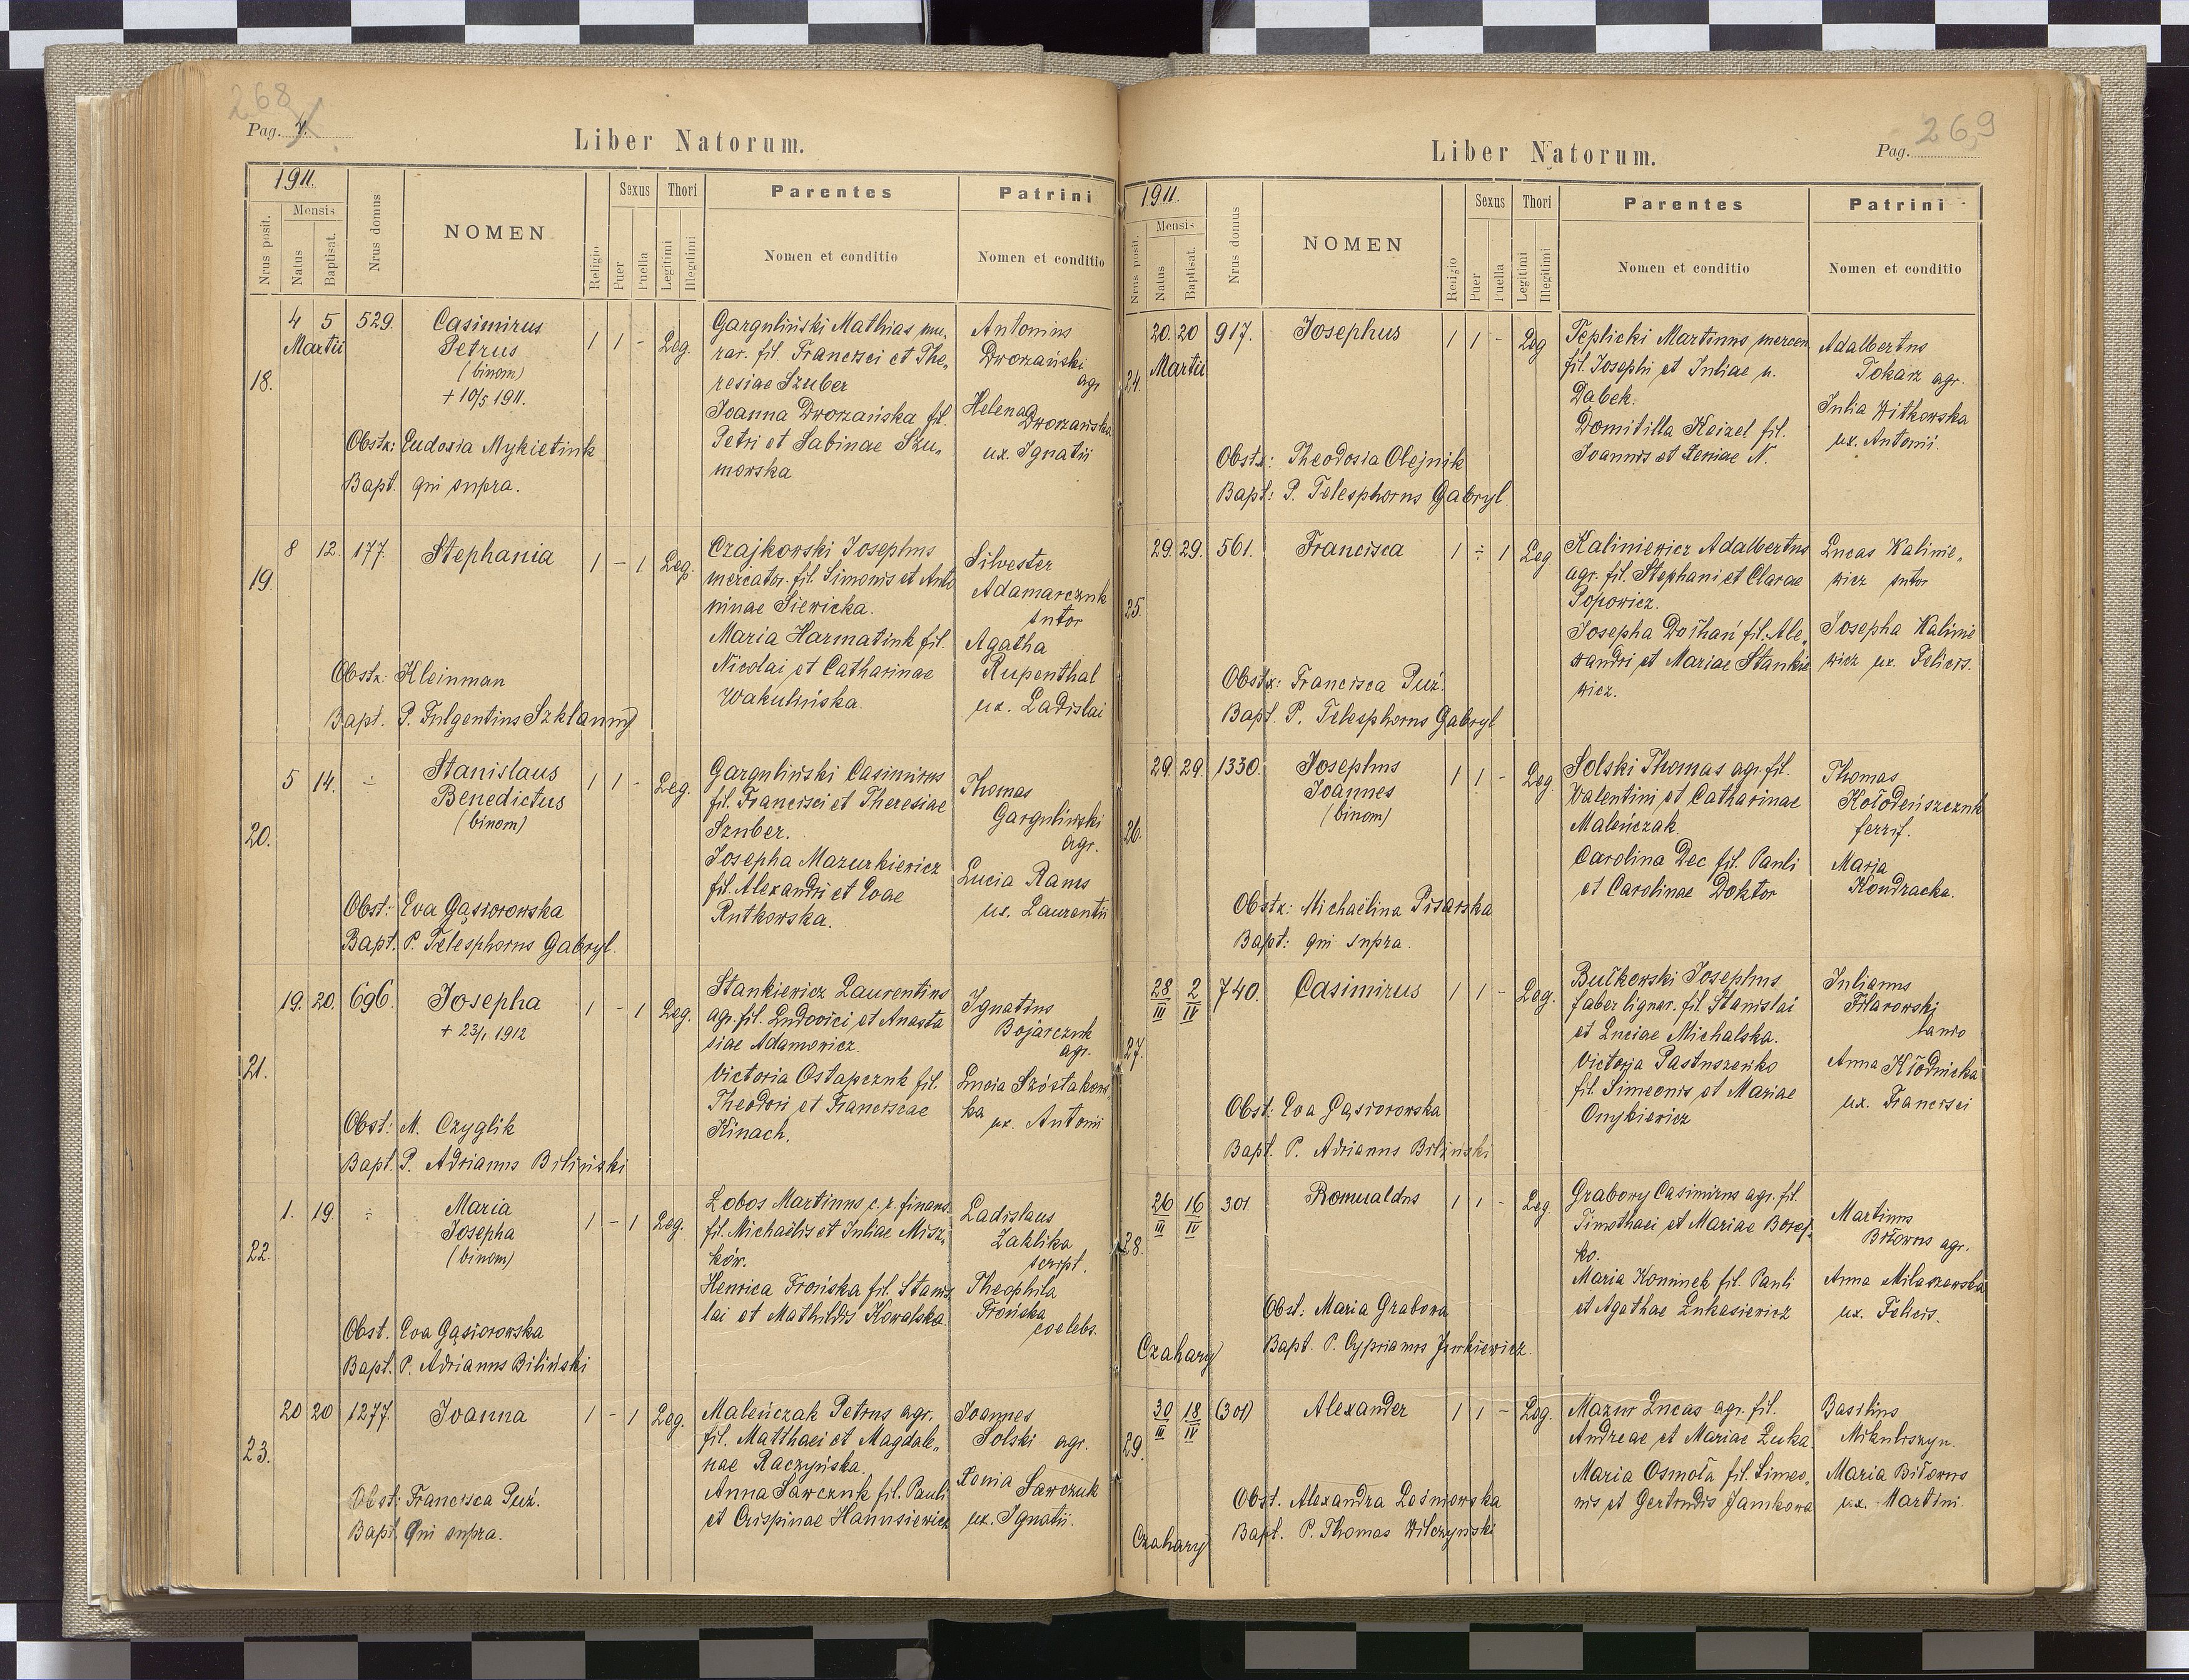 268
Pag. 4.
Liber Natorum.
1911.
Nrus posit.
Mensis
Natus
Baptisat.
Nrus domus
NOMEN
Religio
Sexus
Puer
Puella
Thori
Legitimi
Illegitimi
Parentes
Nomen et conditio
Patrini
Nomen et conditio
18.
4 5 529.
Martii
Casimirus
Petrus
(binom)
+ 10/5 1911.
1 1 - Leg.
Garguliński Mathias mu-
rar. fil. Francisci et The-
resiae Szuber
Joanna Dworzańska fil.
Petri et Sabinae Szu-
morska
Antonius
Dworzański
agr.
Helena
Dworzańska
ux. Ignatii
Obstx: Eudoxia Mykietiuk
Bapt. qui supra.
19.
8 12. 177.
Stephania
1 - 1 Leg.
Czajkowski Josephus
mercator. fil. Simonis et Anto
ninae Siewicka.
Maria Harmatiuk fil.
Nicolai et Catharinae
Wakulińska.
Silvester
Adamarczuk
sutor
Agatha
Rupenthal
ux. Ladislai
Obstx: Kleinman
Bapt. P. Fulgentius Szklanny
20.
5 14. ÷
Stanislaus
Benedictus
(binom)
1 1 - Leg.
Garguliński Casimirus
fil. Francisci et Theresiae
Szuber.
Josepha Mazurkiewicz
fil. Alexandri et Evae
Rutkowska.
Thomas
Garguliński
agr.
Lucia Rams
ux. Laurentii
Obst: Eva Gąsiorowska
Bapt. P. Telesphorus Gabryl.
21.
19. 20. 696.
Josepha
+ 23/1 1912
1 - 1 Leg.
Stankiewicz Laurentius
agr. fil. Ludovici et Anasta
siae Adamowicz.
Victoria Ostapczuk fil.
Theodori et Franciscae
Kinach.
Ignatius
Bojarczuk
agr.
Lucia Szóstakows-
ka
ux. Antonii
Obst: M. Czyglik
Bapt. P. Adrianus Biliński
22.
1. 19. ÷
Maria
Josepha
(binom)
1 - 1 Leg.
Łobos Martinus c. r. finans.
fil. Michaëlis et Juliae Misz-
ków.
Henrica Frońska fil. Stanis
lai et Mathildis Kowalska.
Ladislaus
Zaklika
script.
Theophila
Frońska
coelebs.
Obst. Eva Gąsiorowska
Bapt. P. Adrianus Biliński
23.
20 20 1277.
Joanna
1 - 1 Leg.
Maleńczak Petrus agr.
fil. Matthaei et Magdale-
nae Raczyńska.
Anna Sawczuk fil. Pauli
et Crispinae Hanusiewicz
Joannes
Solski agr.
Xenia Sawczuk
ux. Ignatii.
Obst: Francisca Puź.
Bapt. Qui supra.
269
Pag.
Liber Natorum.
1911.
Nrus posit.
Mensis
Natus
Baptisat.
Nrus domus
NOMEN
Religio
Sexus
Puer
Puella
Thori
Legitimi
Illegitimi
Parentes
Nomen et conditio
Patrini
Nomen et conditio
24.
20. 20 917.
Martii
Josephus
1 1 - Leg
Teplicki Martinus mercen
fil. Josephi et Juliae n.
Dąbek.
Domitilla Keizel fil.
Joannis et Xeniae N.
Adalbertus
Tokarz agr.
Julia Witkowska
ux. Antonii.
Obstx: Theodosia Olejnik
Bapt: P. Telesphorus Gabryl.
25.
29. 29. 561.
Francisca
1 ÷ 1 Leg
Kaliniewicz Adalbertus
agr. fil. Stephani et Clarae
Popowicz.
Josepha Dołhań fil. Ale-
xandri et Mariae Stankie
wicz.
Lucas Kalinie-
wicz sutor
Josepha Kalinie
wicz ux. Felicis.
Obstx: Francisca Puź.
Bapt. P. Telesphorus Gabryl
26.
29. 29. 1330.
Josephus
Joannes
(binom)
1 1 - Leg.
Solski Thomas agr. fil.
Valentini et Catharinae
Maleńczak.
Carolina Dec fil. Pauli
et Carolinae Doktor
Thomas
Kołodeńszczuk
ferrif.
Maria
Kondracka.
Obstx: Michaëlina Pisarska
Bapt: qui supra.
27.
28/III 2/IV 740.
Casimirus
1 1 - Leg.
Bułkowski Josephus
faber lignar. fil. Stanislai
et Luciae Michalska.
Victoria Pastuszenko
fil. Simeonis et Mariae
Onykiewicz
Julianus
Filarowski
lanio
Anna Kłodnicka
ux. Francisci
Obst: Eva Gąsiorowska
Bapt. P. Adrianus Biliński
28.
26/III 16/IV 301.
Romualdus
1 1 - Leg
Grabowy Casimirus agr. fil.
Timothaei et Mariae Borej-
ko.
Maria Kominek fil. Pauli
et Agathae Łukasiewicz
Martinus
Biłowus agr.
Anna Milaszewska
ux. Felicis.
Obst: Maria Grabowa
Czahary
Bapt. P. Cyprianus Jurkiewicz.
29.
30/III 18/IV (301)
Alexander
1 1 - Leg.
Mazur Lucas agr. fil.
Andreae et Mariae Łuka.
Maria Osmoła fil. Simeo-
nis et Gertrudis Jamkowa
Basilius
Mikuliszyn.
Maria Biłowus
ux. Martini.
Obst. Alexandra Leśniowska
Czahary
Bapt. P. Thomas Wilczyński